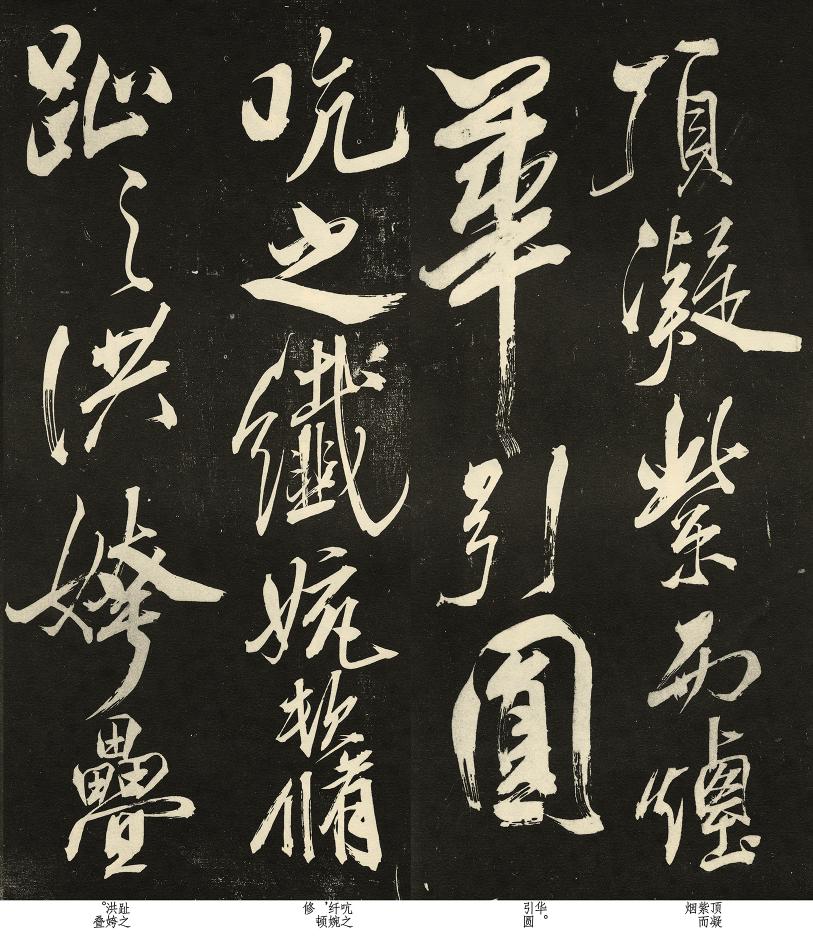 頂凝紫而煙
華引圓
吭之纖婉頓脩
趾之洪姱疊
顶凝紫而烟
华。引圆
吭之纤婉，顿修
趾之洪姱。叠